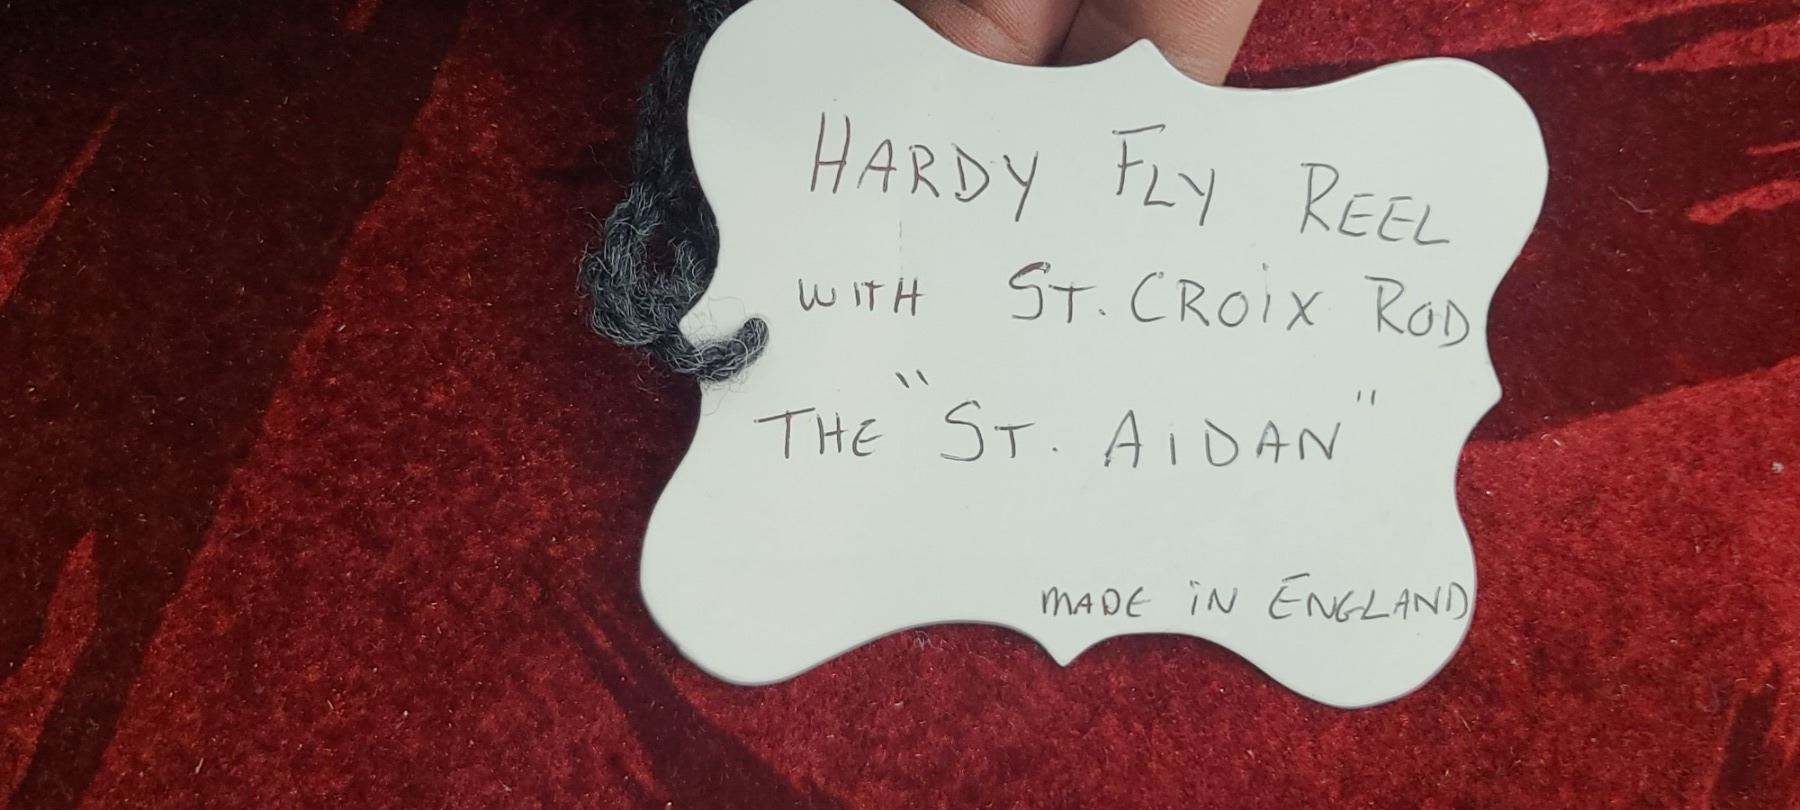 HARDY FLY REEL
WITH ST. CROIX ROD
THE "ST. AIDAN"
MADE IN ENGLAND